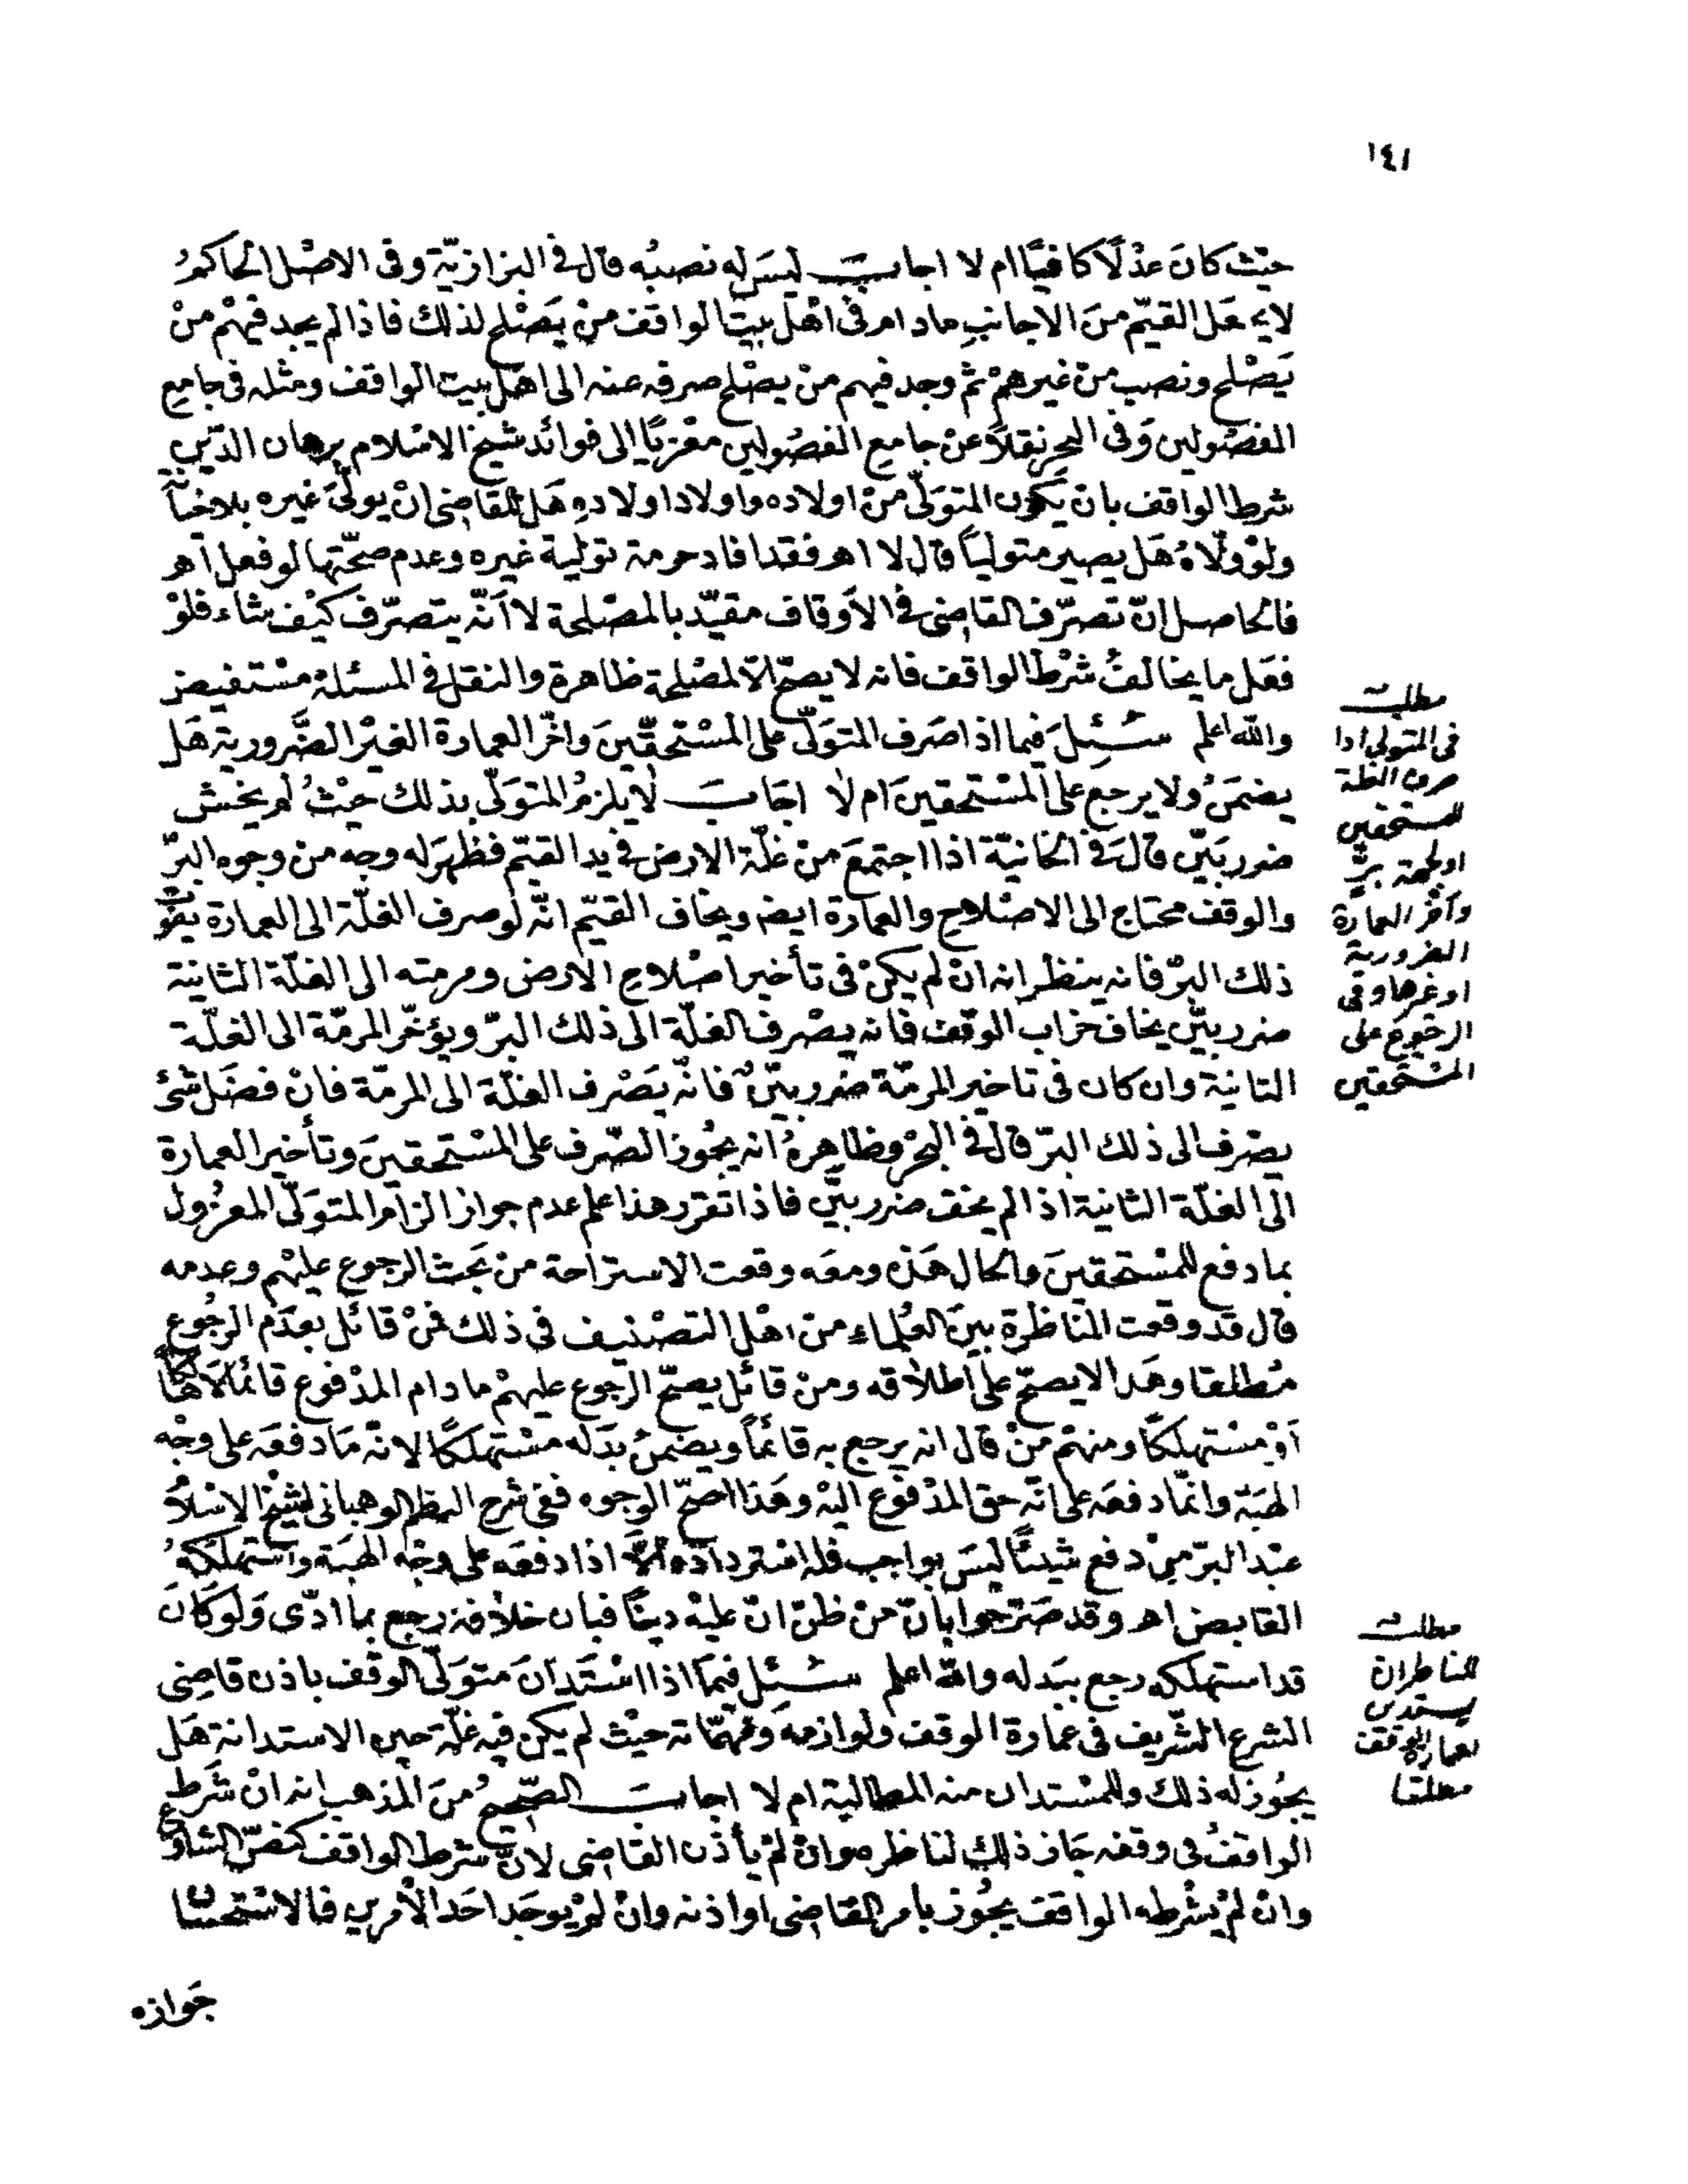 ١٤١
حيث كان عدلًا كافيًا ام لا اجاب ليس له نصبه قال في البزازيّة وفى الاصل الحاكم
لا يجعل القيّم من الاجانب مادام فى اهل بيت الواقف من يصلح لذلك فاذا لم يجد فيهم من
يصلح ونصب من غيرهم ثم وجد فيهم من يصلح صرفه عنه الى اهل بيت الواقف ومثله فى جامع
الفصولين وفى البحر نقلًا عن جامع الفصولين معزيًا الى فوائد شيخ الاسلام برهان الدّين
شرط الواقف بان يكون المتولّى من اولاده واولاد اولاده هل للقاضى ان يولّى غيره بلا خيانة
ولو ولّاه هل يصير متوليًا قال لا اهـ فقد افاد حرمة تولية غيره وعدم صحّتها لو فعل اهـ
فالحاصل انّ تصرّف القاضى في الاوقاف مقيّد بالمصلحة لا انّه يتصرّف كيف شاء فلو
فعل ما يخالف شرط الواقف فانه لا يصحّ الّا لمصلحة ظاهرة والنقل في المسئلة مستفيض
والله اعلم سئل فيما اذا صرف المتولّى على المستحقّين واخّر العمارة الغير الضّرورية هل
يضمن ولا يرجع على المستحقين ام لا اجاب لا يلزم المتولّى بذلك حيث لم يخش
ضرر بيّن قال في الخانيّة اذا اجتمع من غلّة الارض في يد القيّم فظهر له وجه من وجوه البرّ
والوقف محتاج الى الاصلاح والعمارة ايضا ويخاف القيّم انّه لو صرف الغلّة الى العمارة يفوت
ذلك البرّ فانه ينظر انه ان لم يكن فى تأخير اصلاح الارض ومرمته الى الغلّة الثانية
ضرر بيّن يخاف خراب الوقف فانه يصرف الغلّة الى ذلك البرّ ويؤخّر المرمّة الى الغلّة
الثانية وان كان فى تاخير المرمّة ضرر بيّن فانّه يصرف الغلّة الى المرمّة فان فضل شئ
يصرف الى ذلك البرّ قال في البحر وظاهره انه يجوز الصّرف على المستحقين وتأخير العمارة
الى الغلّة الثانية اذا لم يخف ضرر بيّن فاذا تقرر هذا علم عدم جواز الزام المتولّى المعزول
بما دفع للمستحقين والحال هذه ومعه وقعت الاستراحة من بحث الرجوع عليهم وعدمه
قال قد وقعت المناظرة بين العلماء من اهل التصنيف فى ذلك فمن قائل بعدم الرجوع
مطلقا وهذا لا يصحّ على اطلاقه ومن قائل يصحّ الرجوع عليهم مادام المدفوع قائمًا لا هالكًا
او مستهلكًا ومنهم من قال انه يرجع به قائمًا ويضمن بدله مستهلكًا لانّه ما دفعه على وجه
الهبة وانّما دفعه على انّه حق المدفوع اليه وهذا اصحّ الوجوه ففى شرح النظم الوهبانى لشيخ الاسلام
عبد البرّ من دفع شيئًا ليس بواجب فله استرداده الّا اذا دفعه على وجه الهبة واستهلكه
القابض اهـ وقد صرّحوا بانّ من ظنّ انّ عليه دينًا فبان خلافه رجع بما ادّى ولو كان
قد استهلكه رجع ببدله والله اعلم سئل فيما اذا استدان متولّى الوقف باذن قاضى
الشرع الشّريف فى عمارة الوقف ولوازمه ومهمّاته حيث لم يكن فيه غلّة حين الاستدانة هل
يجوز له ذلك وللمستدان منه المطالبة ام لا اجاب الصّحيح من المذهب انه ان شرط
الواقف فى وقفه جاز ذلك لناظره وان لم يأذن القاضى لانّ شرط الواقف كنصّ الشارع
وان لم يشرطه الواقف يجوز بامر القاضى او اذنه وان لم يوجد احد الأمرين فالاستحسان
جوازه
مطلب
فى المتولى اذا
صرف الغلة
للمستحقين
او لجهة برّ
وأخّر العمارة
الضرورية
او غيرها وفى
الرجوع على
المستحقين
مطلب
للناظر ان
يستدين
لعمارة الوقف
مطلقا